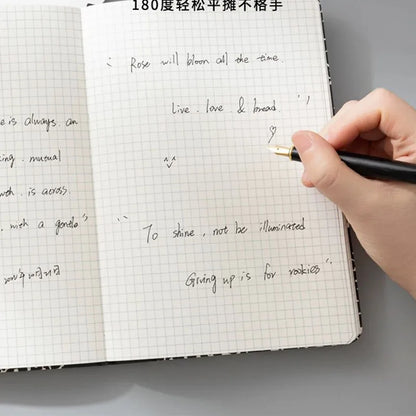 180度轻松平摊不格手
e is always. an
ing. mutual
wth. is across.
. with a gentle"
" Rose will bloom all the time.
Live. love & bread. "
" To shine, not be illuminated
Giving up is for rookies"